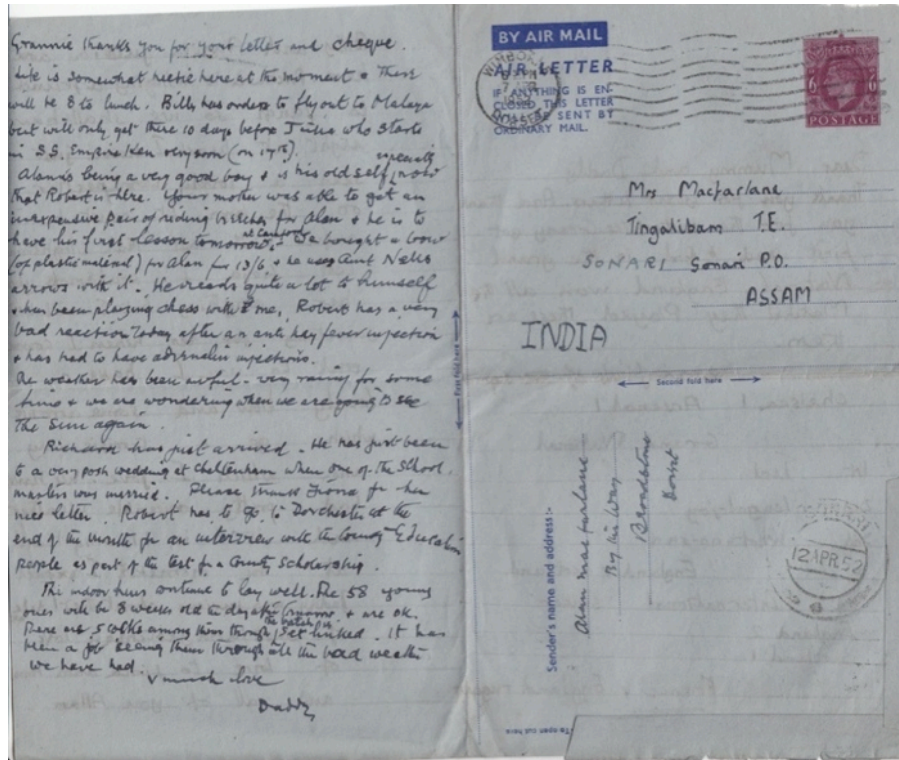 Grannie thanks you for your letter and cheque.
Life is somewhat hectic here at the moment & there
will be 8 to lunch. Billy has orders to fly out to Malaya
but will only get there 10 days before Julia who starts
in S.S. Empire Ken very soon (on 17th).
Alan is being a very good boy & is his old self, especially now
that Robert is here. Your mother was able to get an
inexpensive pair of riding britches for Alan & he is to
have his first lesson tomorrow. We bought a bow
(of plastic material) for Alan for 13/6 & he uses Aunt Nell's
arrows with it. He reads quite a lot to himself
& has been playing chess with me. Robert has a very
bad reaction today after an anti hay fever injection
& has had to have adrenalin injections.
The weather has been awful - very rainy for some
time & we are wondering when we are going to see
the sun again.
Richard has just arrived. He has just been
to a very posh wedding at Cheltenham when one of the school
masters was married. Please thank Fiona for her
nice letter. Robert has to go to Dorchester at the
end of the month for an interview with the County Education
people as part of the test for a County Scholarship.
The indoor hens continue to lay well. The 58 young
ones will be 8 weeks old the day after tomorrow & are OK.
There are 5 cocks among them though the batch was sex linked. It has
been a job seeing them through all the bad weather
we have had.
v much love
Daddy
BY AIR MAIL
AIR LETTER
IF ANYTHING IS EN-
CLOSED THIS LETTER
BE SENT BY
ORDINARY MAIL.
DORSET
6 6
POSTAGE
Mrs Macfarlane
Tingalibam T.E.
SONARI Sonari P.O.
ASSAM
INDIA
First fold here
Second fold here
Sender's name and address:-
Alan Macfarlane
By the Way
Broadstone
Dorset
12 APR 52
To open cut here